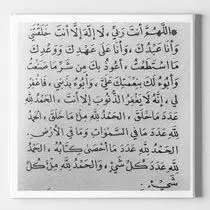 *اللَّهُمَّ أَنْتَ رَبِّي ، لَا إِلَهَ إِلَّا أَنْتَ خَلَقْتَنِي
وَأَنَا عَبْدُكَ ، وَأَنَا عَلَى عَهْدِكَ وَوَعْدِكَ
مَا اسْتَطَعْتُ ، أَعُوذُ بِكَ مِنْ شَرِّ مَا صَنَعْتُ
وَأَبُوءُ لَكَ بِنِعْمَتِكَ عَلَيَّ ، وَأَبُوءُ بِذَنْبِي ، فَاغْفِرْ لِي
، إِنَّهُ لَا يَغْفِرُ الذُّنُوبَ إِلَّا أَنْتَ ، الْحَمْدُ لِلَّهِ
عَدَدَ مَا خَلَقَ ، الْحَمْدُ لِلَّهِ مِلْءَ مَا خَلَقَ ، الْحَمْدُ
لِلَّهِ عَدَدَ مَا فِي السَّمَوَاتِ وَمَا فِي الْأَرْضِ .
الْحَمْدُ لِلَّهِ عَدَدَ مَا أَحْصَى كِتَابُهُ ، الْحَمْدُ
لِلَّهِ عَدَدَ كُلِّ شَيْءٍ ، وَالْحَمْدُ لِلَّهِ مِلْءَ كُلِّ
شَيْءٍ .